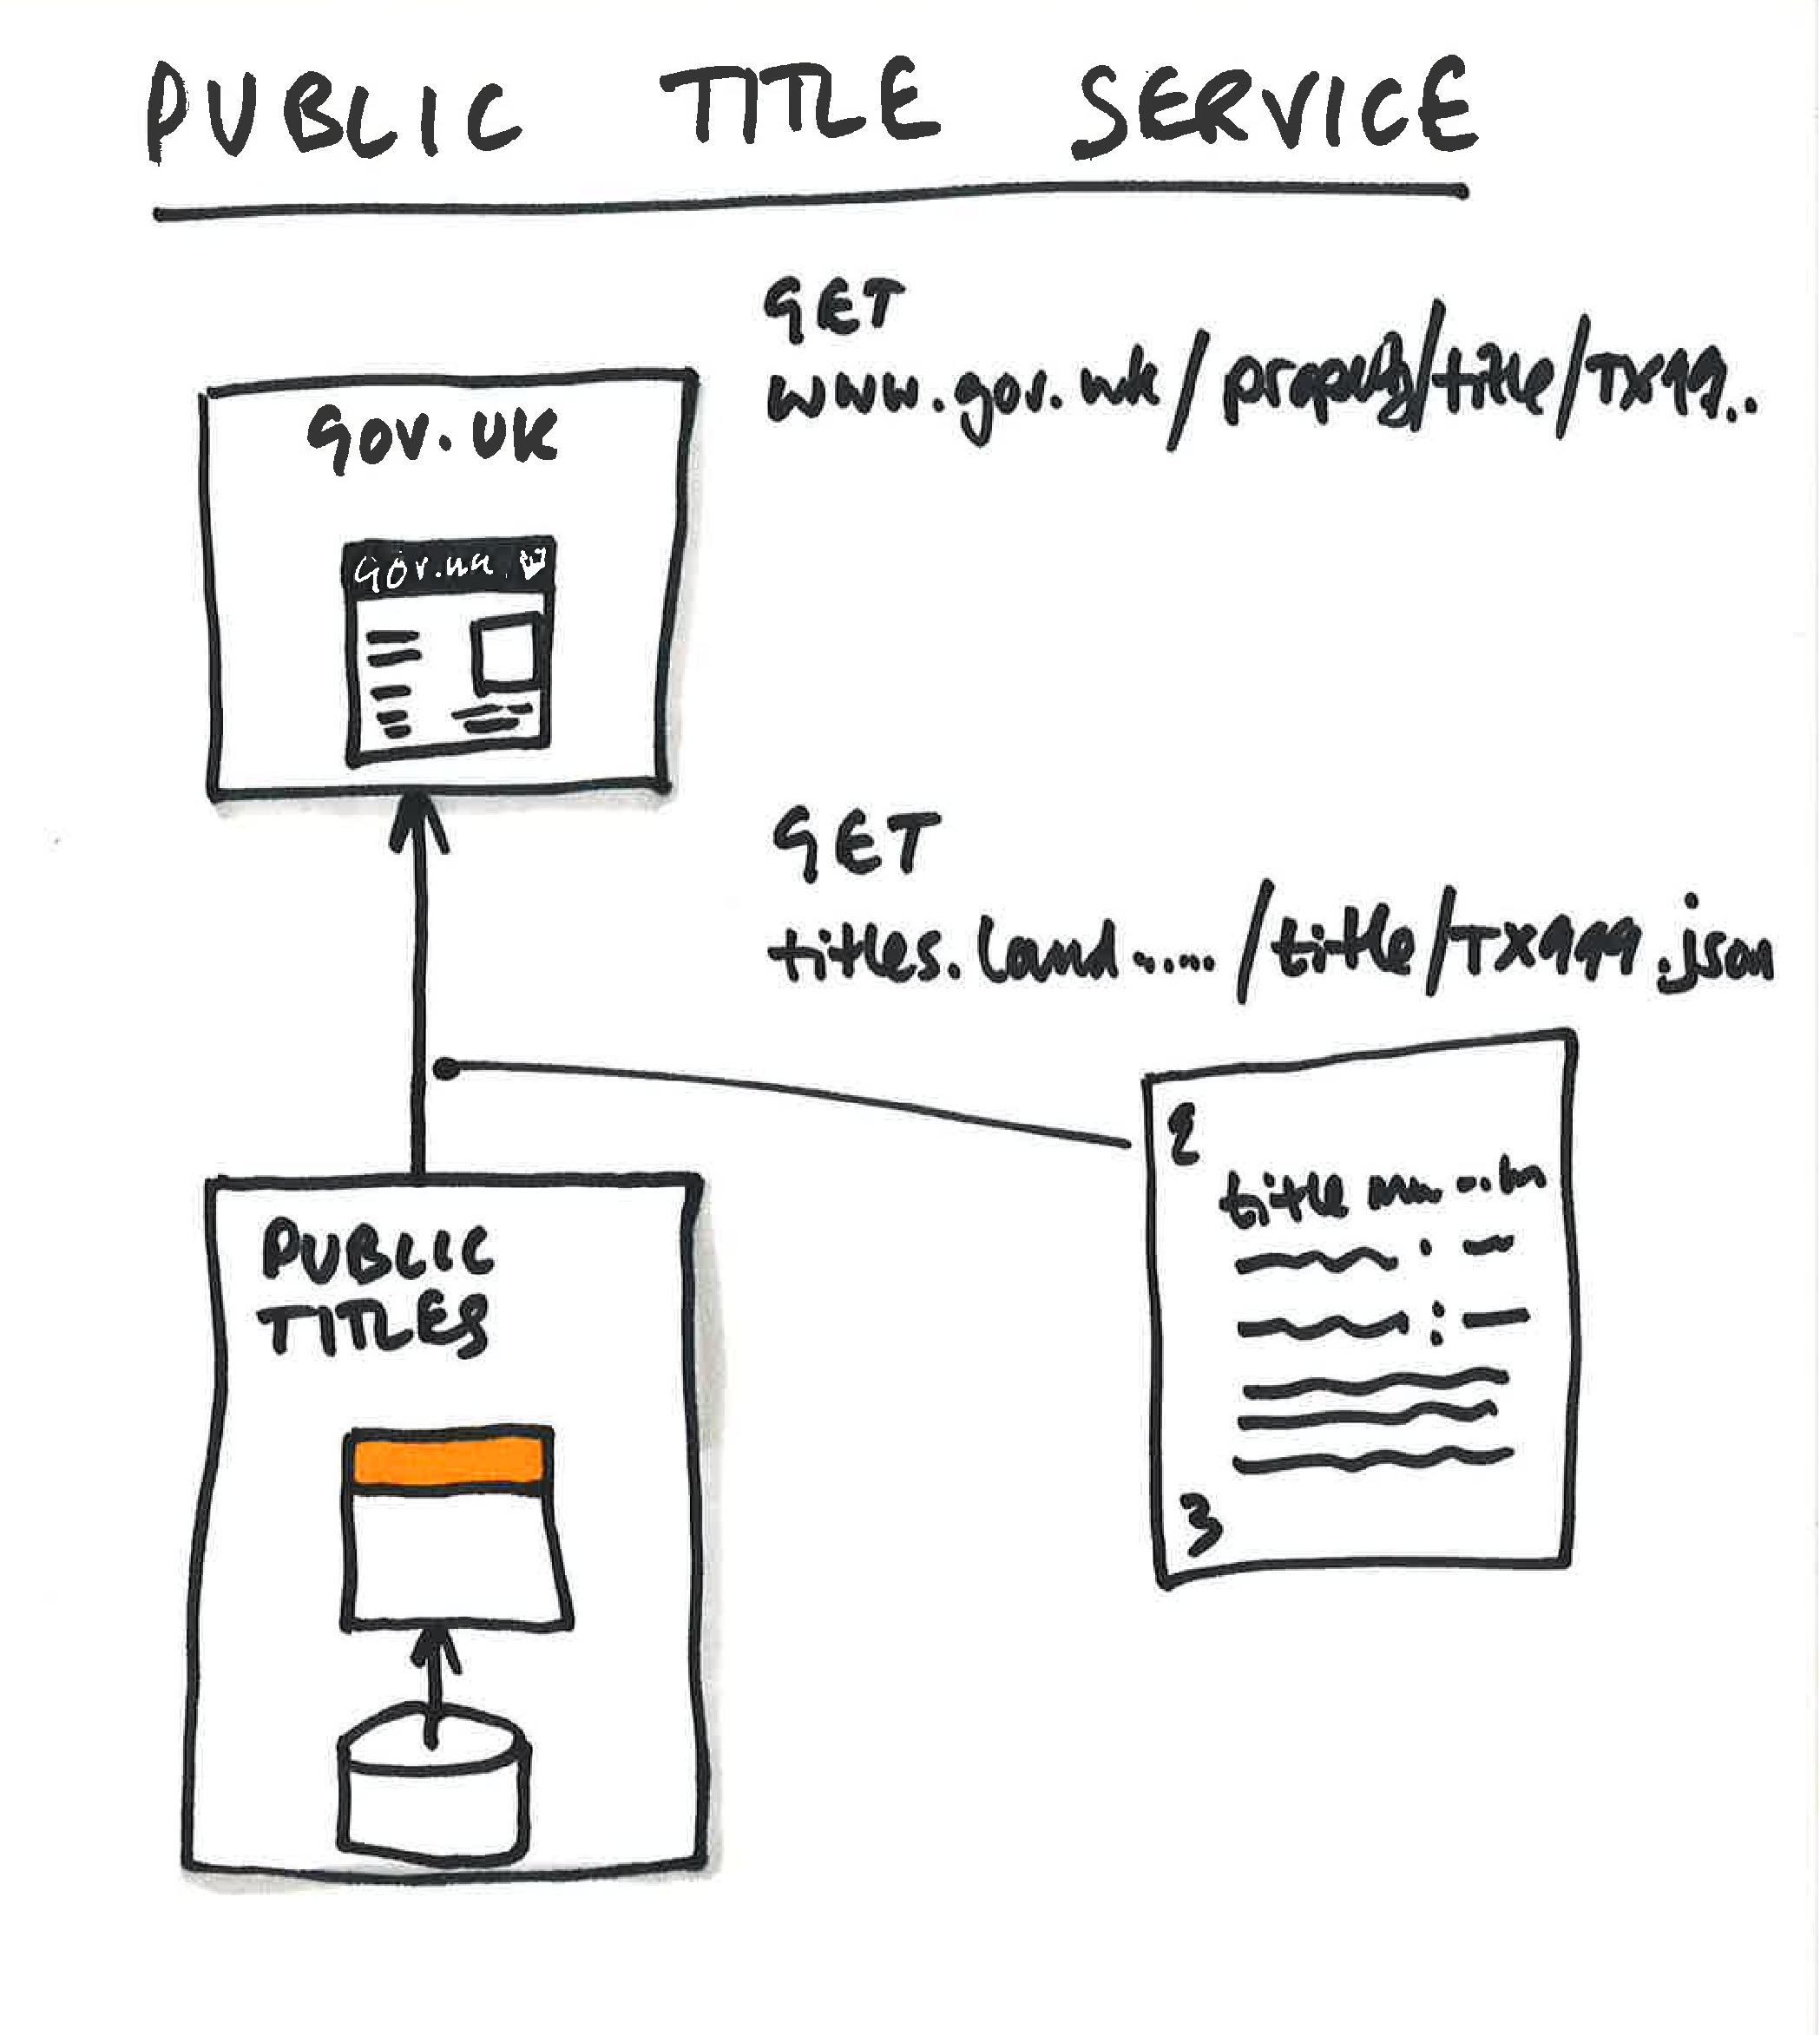 PUBLIC TITLE SERVICE
GET
www.gov.uk/property/title/TX99..
GOV.UK
GOV.UK
GET
titles.land...... /title/TX999.json
{
title
:
:
}
PUBLIC
TITLES